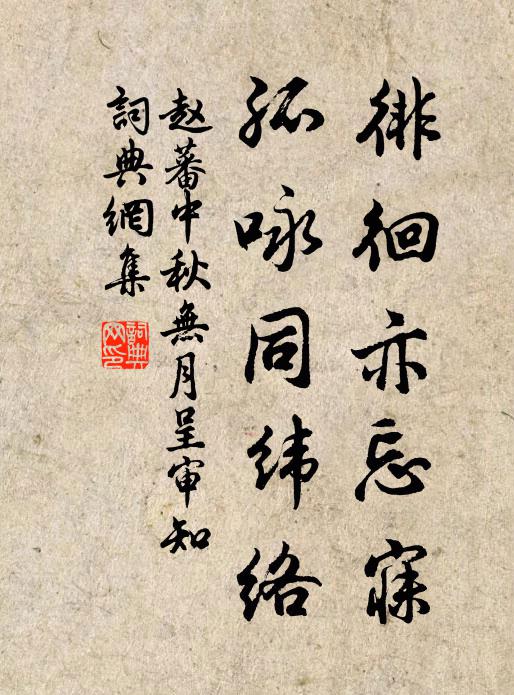 徘徊亦忘寐
孤咏同纬络
赵蕃中秋無月呈审知
詞典網集
詞典網印